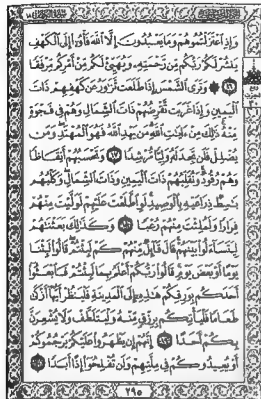 وَإِذِ ٱعْتَزَلْتُمُوهُمْ وَمَا يَعْبُدُونَ إِلَّا ٱللَّهَ فَأْوُۥٓا۟ إِلَى ٱلْكَهْفِ
يَنشُرْ لَكُمْ رَبُّكُم مِّن رَّحْمَتِهِۦ وَيُهَيِّئْ لَكُم مِّنْ أَمْرِكُم مِّرْفَقًا
١٦ وَتَرَى ٱلشَّمْسَ إِذَا طَلَعَت تَّزَٰوَرُ عَن كَهْفِهِمْ ذَاتَ
ٱلْيَمِينِ وَإِذَا غَرَبَت تَّقْرِضُهُمْ ذَاتَ ٱلشِّمَالِ وَهُمْ فِى فَجْوَةٍ
مِّنْهُ ذَٰلِكَ مِنْ ءَايَٰتِ ٱللَّهِ مَن يَهْدِ ٱللَّهُ فَهُوَ ٱلْمُهْتَدِ وَمَن
يُضْلِلْ فَلَن تَجِدَ لَهُۥ وَلِيًّا مُّرْشِدًا ١٧ وَتَحْسَبُهُمْ أَيْقَاظًا
وَهُمْ رُقُودٌ وَنُقَلِّبُهُمْ ذَاتَ ٱلْيَمِينِ وَذَاتَ ٱلشِّمَالِ وَكَلْبُهُم
بَٰسِطٌ ذِرَاعَيْهِ بِٱلْوَصِيدِ لَوِ ٱطَّلَعْتَ عَلَيْهِمْ لَوَلَّيْتَ مِنْهُمْ
فِرَارًا وَلَمُلِئْتَ مِنْهُمْ رُعْبًا ١٨ وَكَذَٰلِكَ بَعَثْنَٰهُمْ
لِيَتَسَآءَلُوا۟ بَيْنَهُمْ قَالَ قَآئِلٌ مِّنْهُمْ كَمْ لَبِثْتُمْ قَالُوا۟ لَبِثْنَا
يَوْمًا أَوْ بَعْضَ يَوْمٍ قَالُوا۟ رَبُّكُمْ أَعْلَمُ بِمَا لَبِثْتُمْ فَٱبْعَثُوٓا۟
أَحَدَكُم بِوَرِقِكُمْ هَٰذِهِۦٓ إِلَى ٱلْمَدِينَةِ فَلْيَنظُرْ أَيُّهَآ أَزْكَىٰ
طَعَامًا فَلْيَأْتِكُم بِرِزْقٍ مِّنْهُ وَلْيَتَلَطَّفْ وَلَا يُشْعِرَنَّ
بِكُمْ أَحَدًا ١٩ إِنَّهُمْ إِن يَظْهَرُوا۟ عَلَيْكُمْ يَرْجُمُوكُمْ
أَوْ يُعِيدُوكُمْ فِى مِلَّتِهِمْ وَلَن تُفْلِحُوٓا۟ إِذًا أَبَدًا ٢٠
٢٩٥